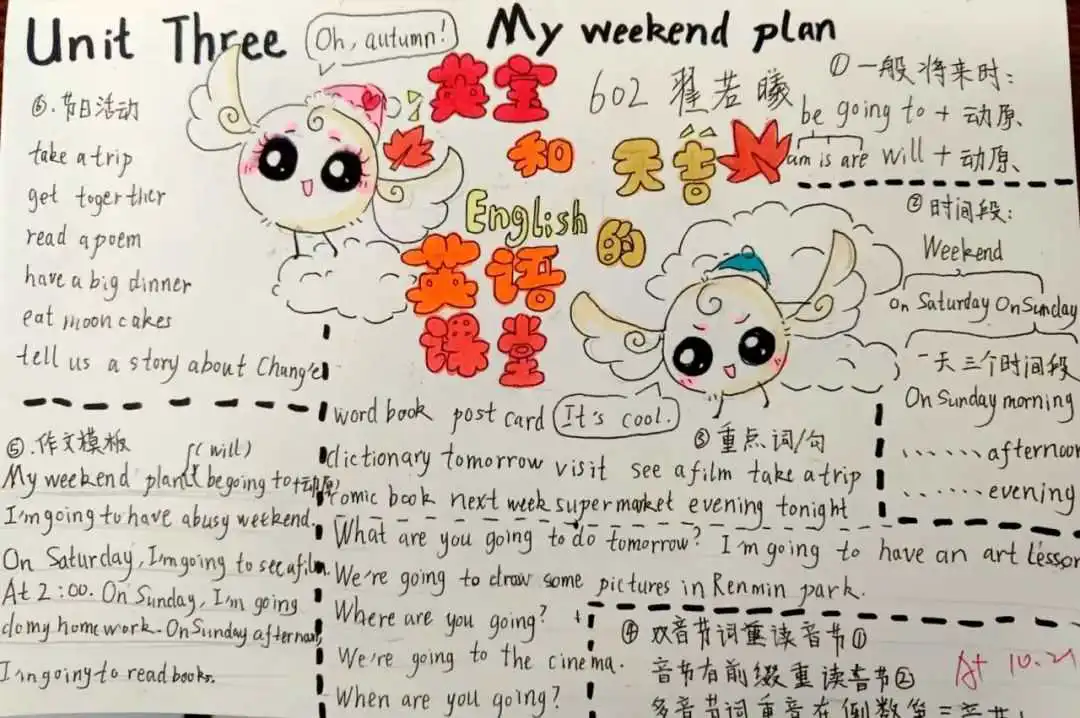 Unit Three
My weekend plan
Oh, autumn!
英宝
和 天音
English
的
英语
课堂
602 翟若曦
①一般将来时:
be going to + 动原、
am is are will + 动原、
②时间段:
Weekend
on Saturday On Sunday
一天三个时间段
On Sunday morning
...... afternoon
...... evening
⑥.节日活动
take a trip
get togerther
read a poem
have a big dinner
eat moon cakes
tell us a story about Chang'e
⑤.作文模板
(will)
My weekend plan be going to +动原)
I'm going to have a busy weekend.
On Saturday, I'm going to see a film.
At 2:00. On Sunday, I'm going
do my homework. On Sunday afternoon,
I'm going to read books.
It's cool.
③重点词/句
word book post card
dictionary tomorrow visit see a film take a trip
comic book next week supermarket evening tonight
What are you going to do tomorrow? I'm going to have an art lesson
We're going to draw some pictures in Renmin park.
Where are you going?
We're going to the cinema.
When are you going?
④双音节词重读音节①
音节有前缀重读音节②
多音节词重音在倒数第三音节
A+ 10.21